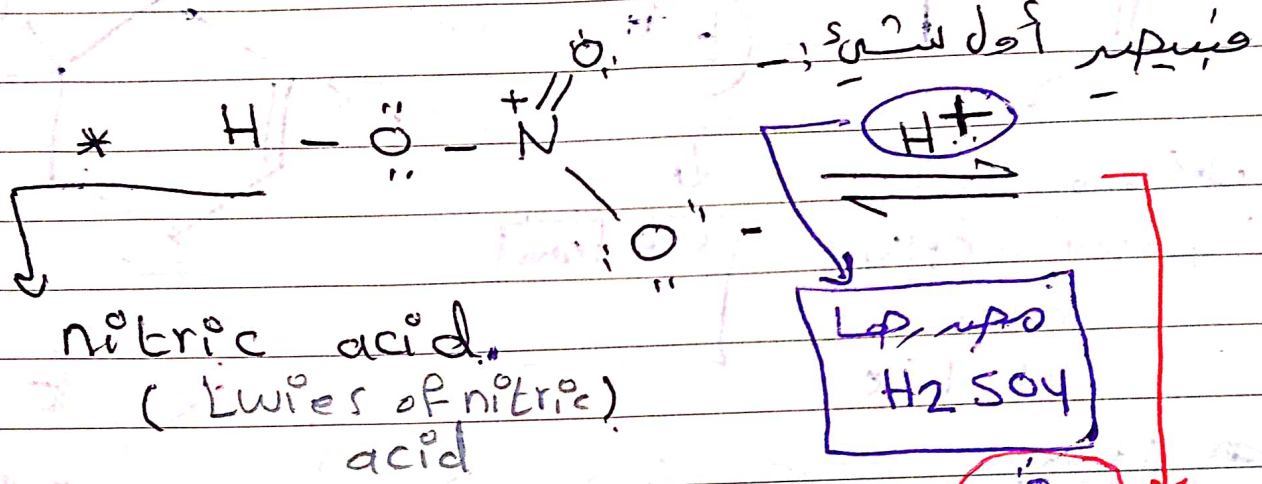 فبيصير أول شيء :-
* H - O - N + = O
H+
O -
nitric acid.
(twies of nitric)
acid
مصدرها
H2 SO4